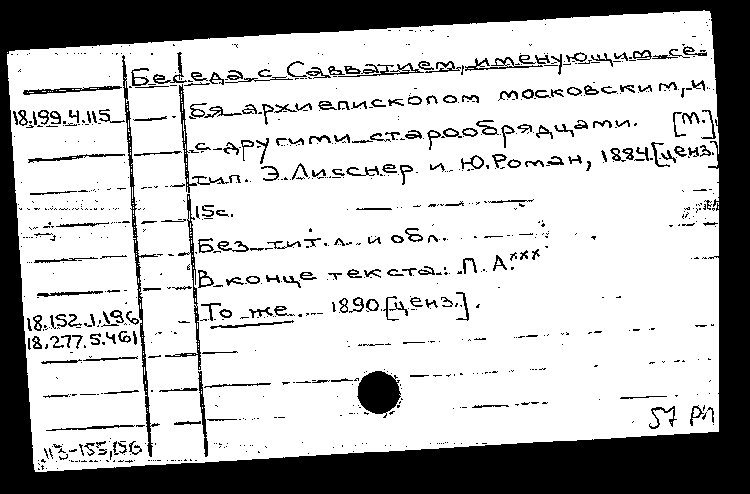 Беседа с Савватием, именующим се-
18.199.4.115 бя архиепископом московским, и
с другими старообрядцами. [М.],
тип. Э. Лисснер и Ю. Роман, 1884. [ценз.]
15с.
Без тит. л. и обл.
В конце текста: П. А.***
18.152.1.196 То же. 1890. [ценз.].
18.277.5.461
57
113-155,156